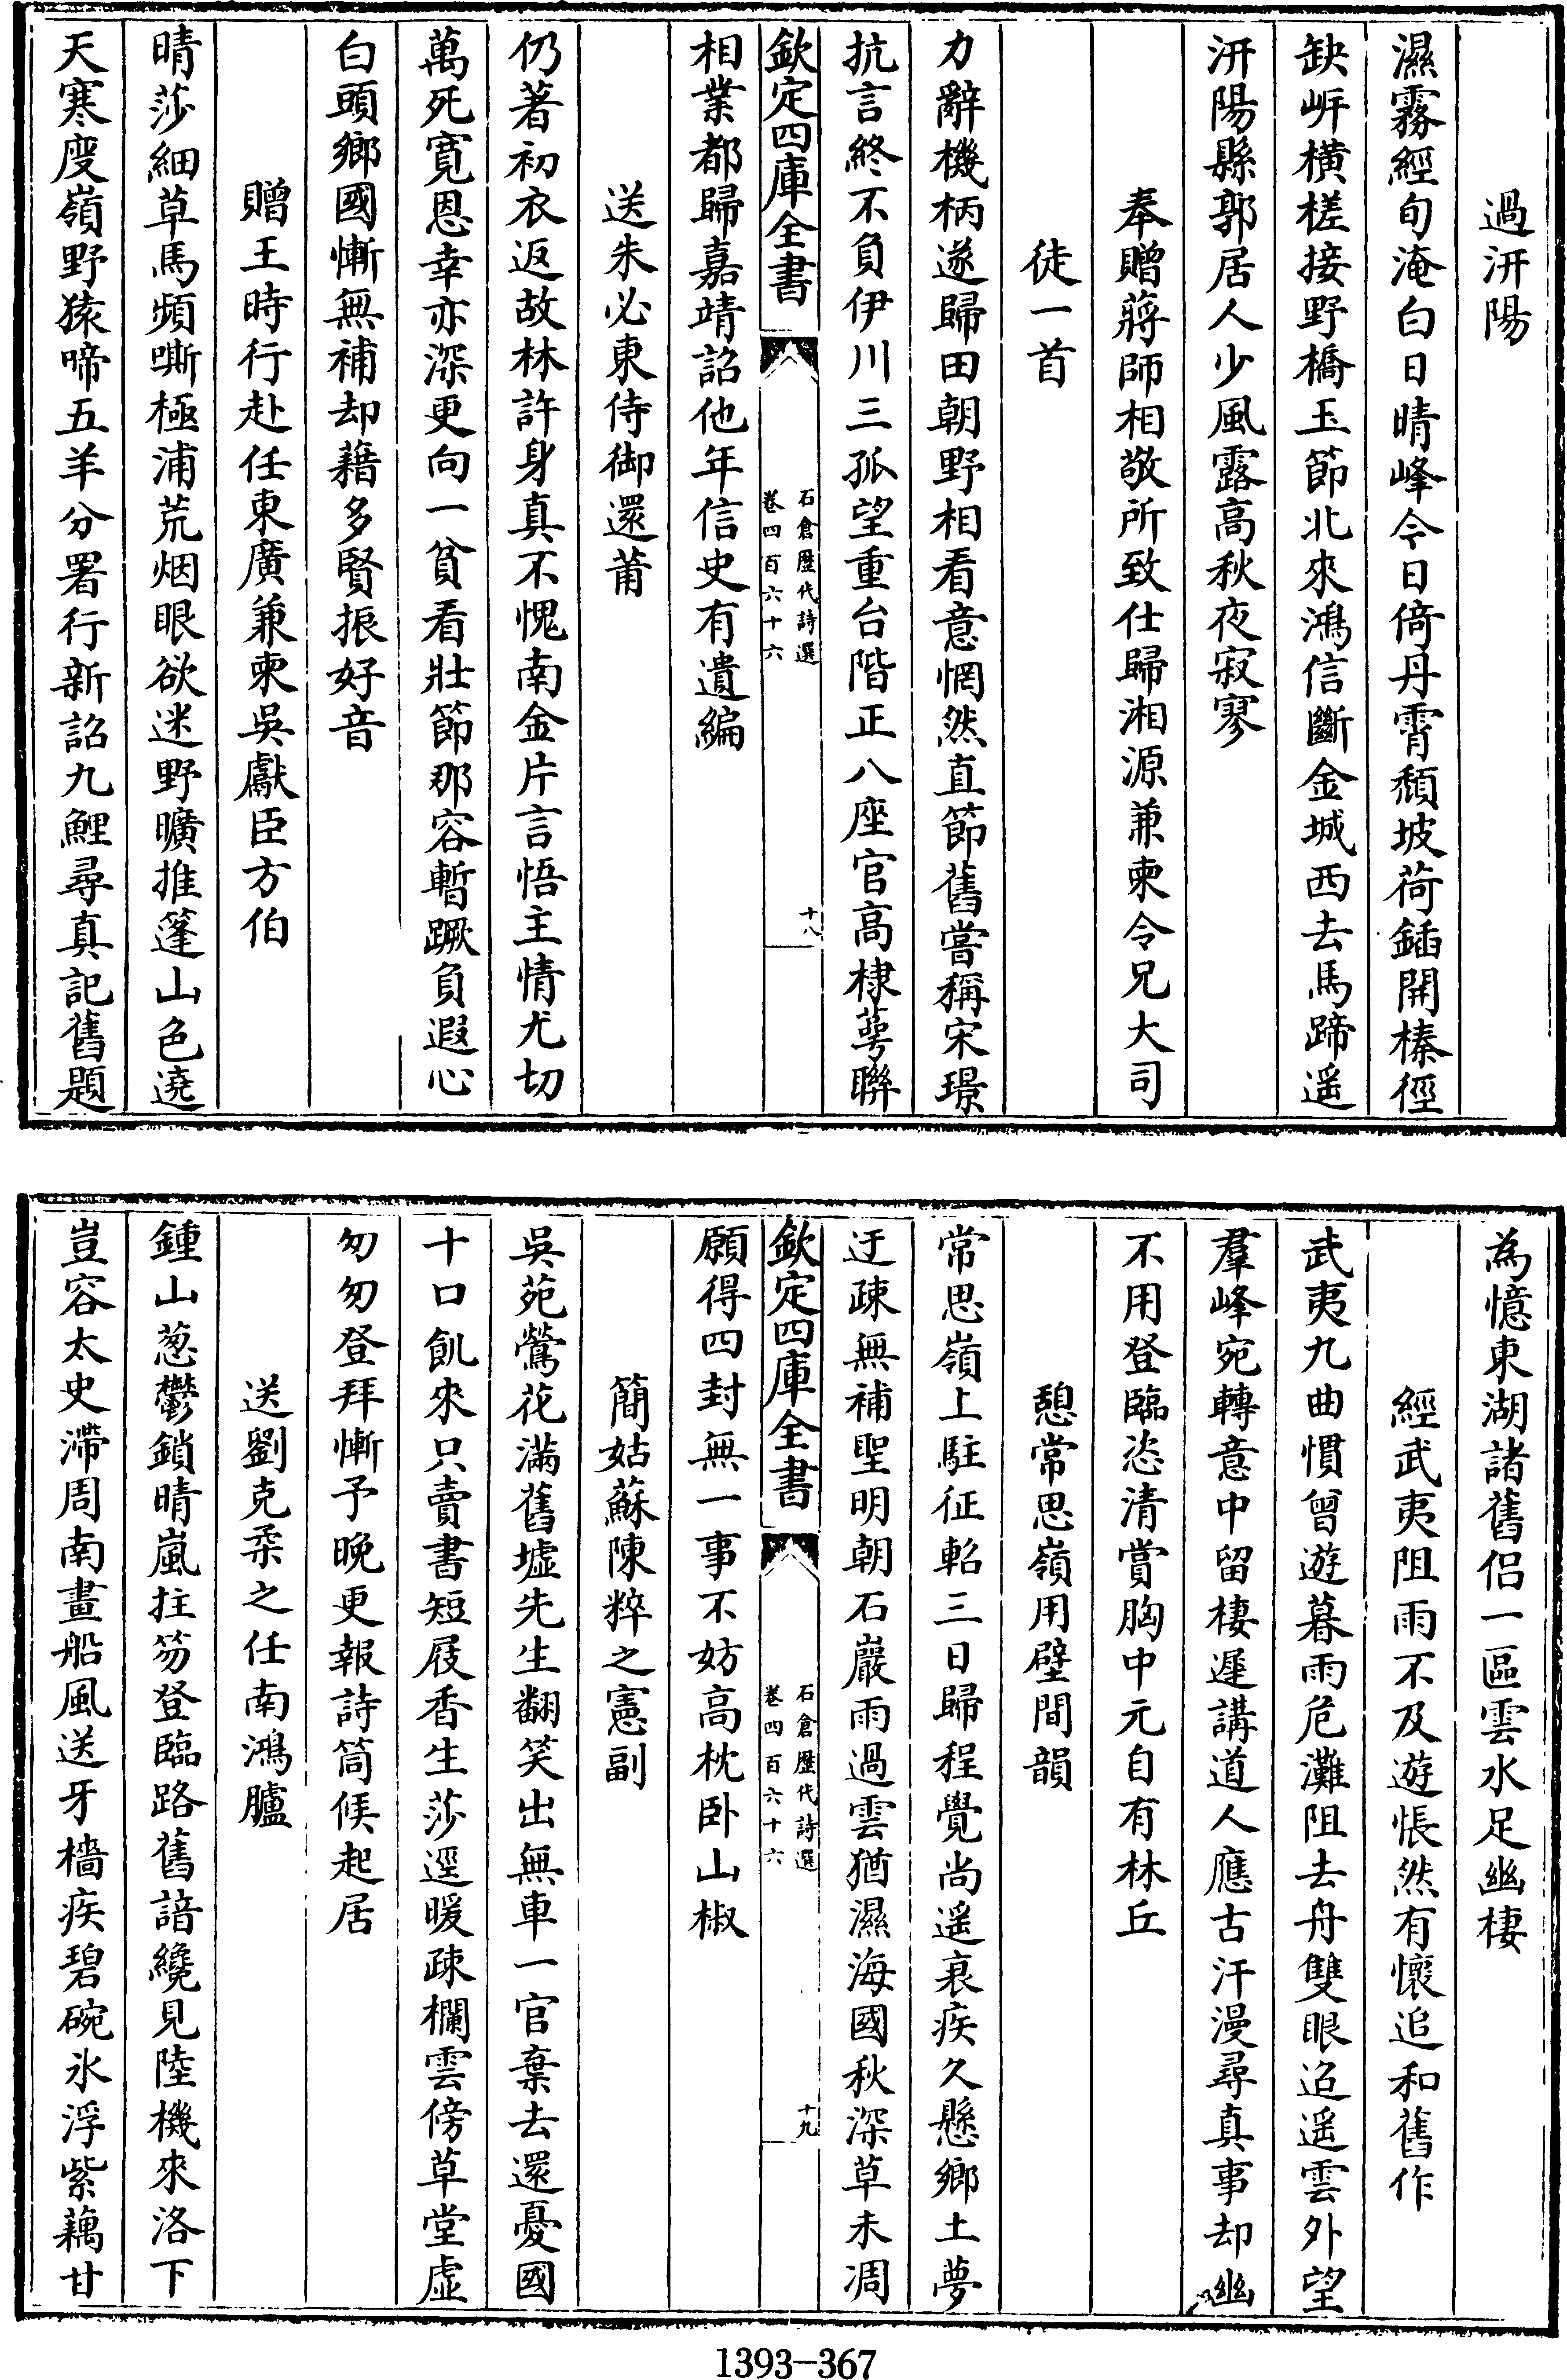 過汧陽
濕霧經旬淹白日晴峰今日倚丹霄頽坡荷鍤開榛徑
缺岍横槎接野橋玉節北來鴻信斷金城西去馬蹄遥
汧陽縣郭居人少風露高秋夜寂寥
奉贈蔣師相敬所致仕歸湘源兼柬令兄大司
徒一首
力辭機柄遂歸田朝野相看意惘然直節舊嘗稱宋璟
抗言終不負伊川三孤望重台階正八座官高棣萼聯
欽定四庫全書
石倉歷代詩選
卷四百六十六
十八
相業都歸嘉靖詔他年信史有遺編
送朱必東侍御還莆
仍著初衣返故林許身真不愧南金片言悟主情尤切
萬死寛恩幸亦深更向一貧看壯節那容暫蹶負遐心
白頭鄉國慚無補却藉多賢振好音
贈王時行赴任東廣兼柬吳獻臣方伯
晴莎細草馬頻嘶極浦荒烟眼欲迷野曠推篷山色遶
天寒度嶺野猿啼五羊分署行新詔九鯉尋真記舊題
為憶東湖諸舊侣一區雲水足幽棲
經武夷阻雨不及遊悵然有懷追和舊作
武夷九曲慣曾遊暮雨危灘阻去舟雙眼迢遥雲外望
羣峰宛轉意中留棲遲講道人應古汗漫尋真事却幽
不用登臨恣清賞胸中元自有林丘
憩常思嶺用壁間韻
常思嶺上駐征軺三日歸程覺尚遥衰疾久懸鄉土夢
迂疎無補聖明朝石巖雨過雲猶濕海國秋深草未凋
欽定四庫全書
石倉歷代詩選
卷四百六十六
十九
願得四封無一事不妨高枕卧山椒
簡姑蘇陳粹之憲副
吳苑鶯花滿舊墟先生翻笑出無車一官棄去還憂國
十口飢來只賣書短屐香生莎逕暖疎欄雲傍草堂虛
匆匆登拜慚予晚更報詩筒候起居
送劉克柔之任南鴻臚
鍾山葱鬱鎖晴嵐拄笏登臨路舊諳纔見陸機來洛下
豈容太史滯周南畫船風送牙檣疾碧碗氷浮紫藕甘
1393-367